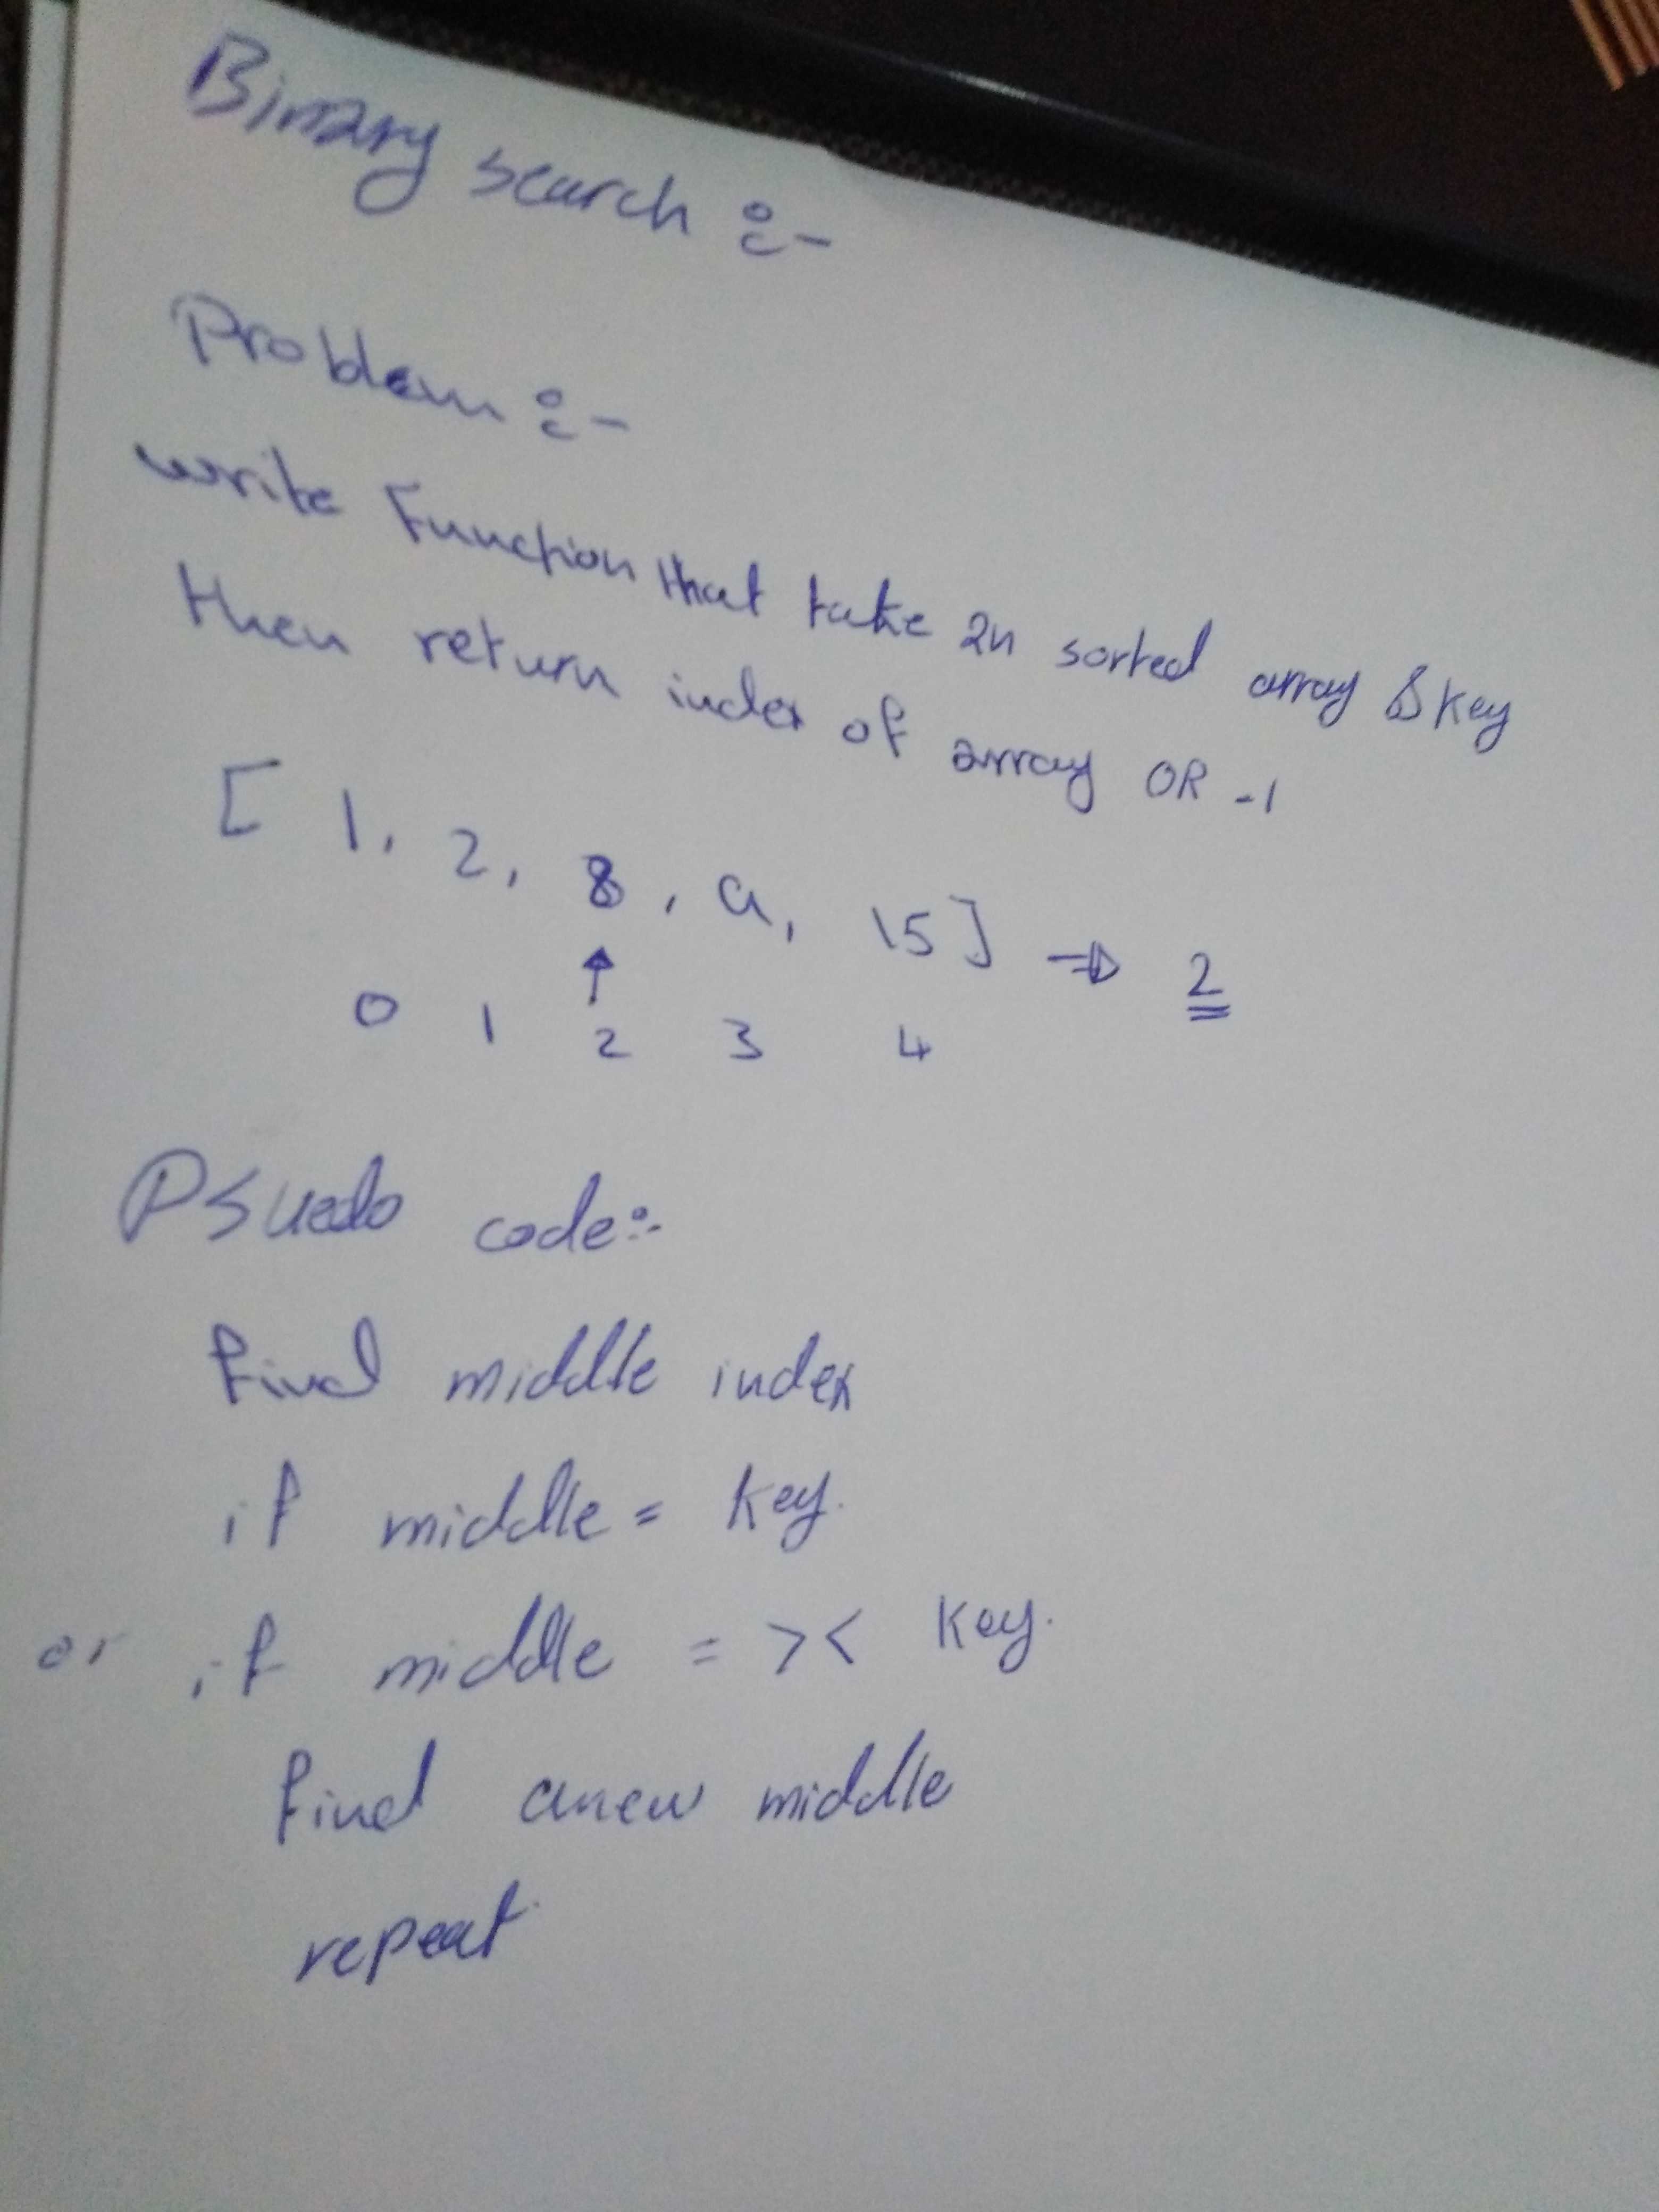 Binary search :-
Problem :-
write Function that take an sorted array & key
then return index of array OR -1
[ 1, 2, 8, 9, 15 ] ⇒ 2
↑
0 1 2 3 4
Psuedo code:-
find middle index
if middle = key.
or if middle = >< key.
find a new middle
repeat